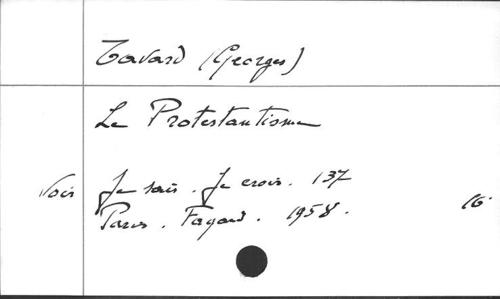 Tavard (Georges)
Le Protestantisme
Voir Je sais. Je crois. 137
Paris. Fayard. 1958. 16°